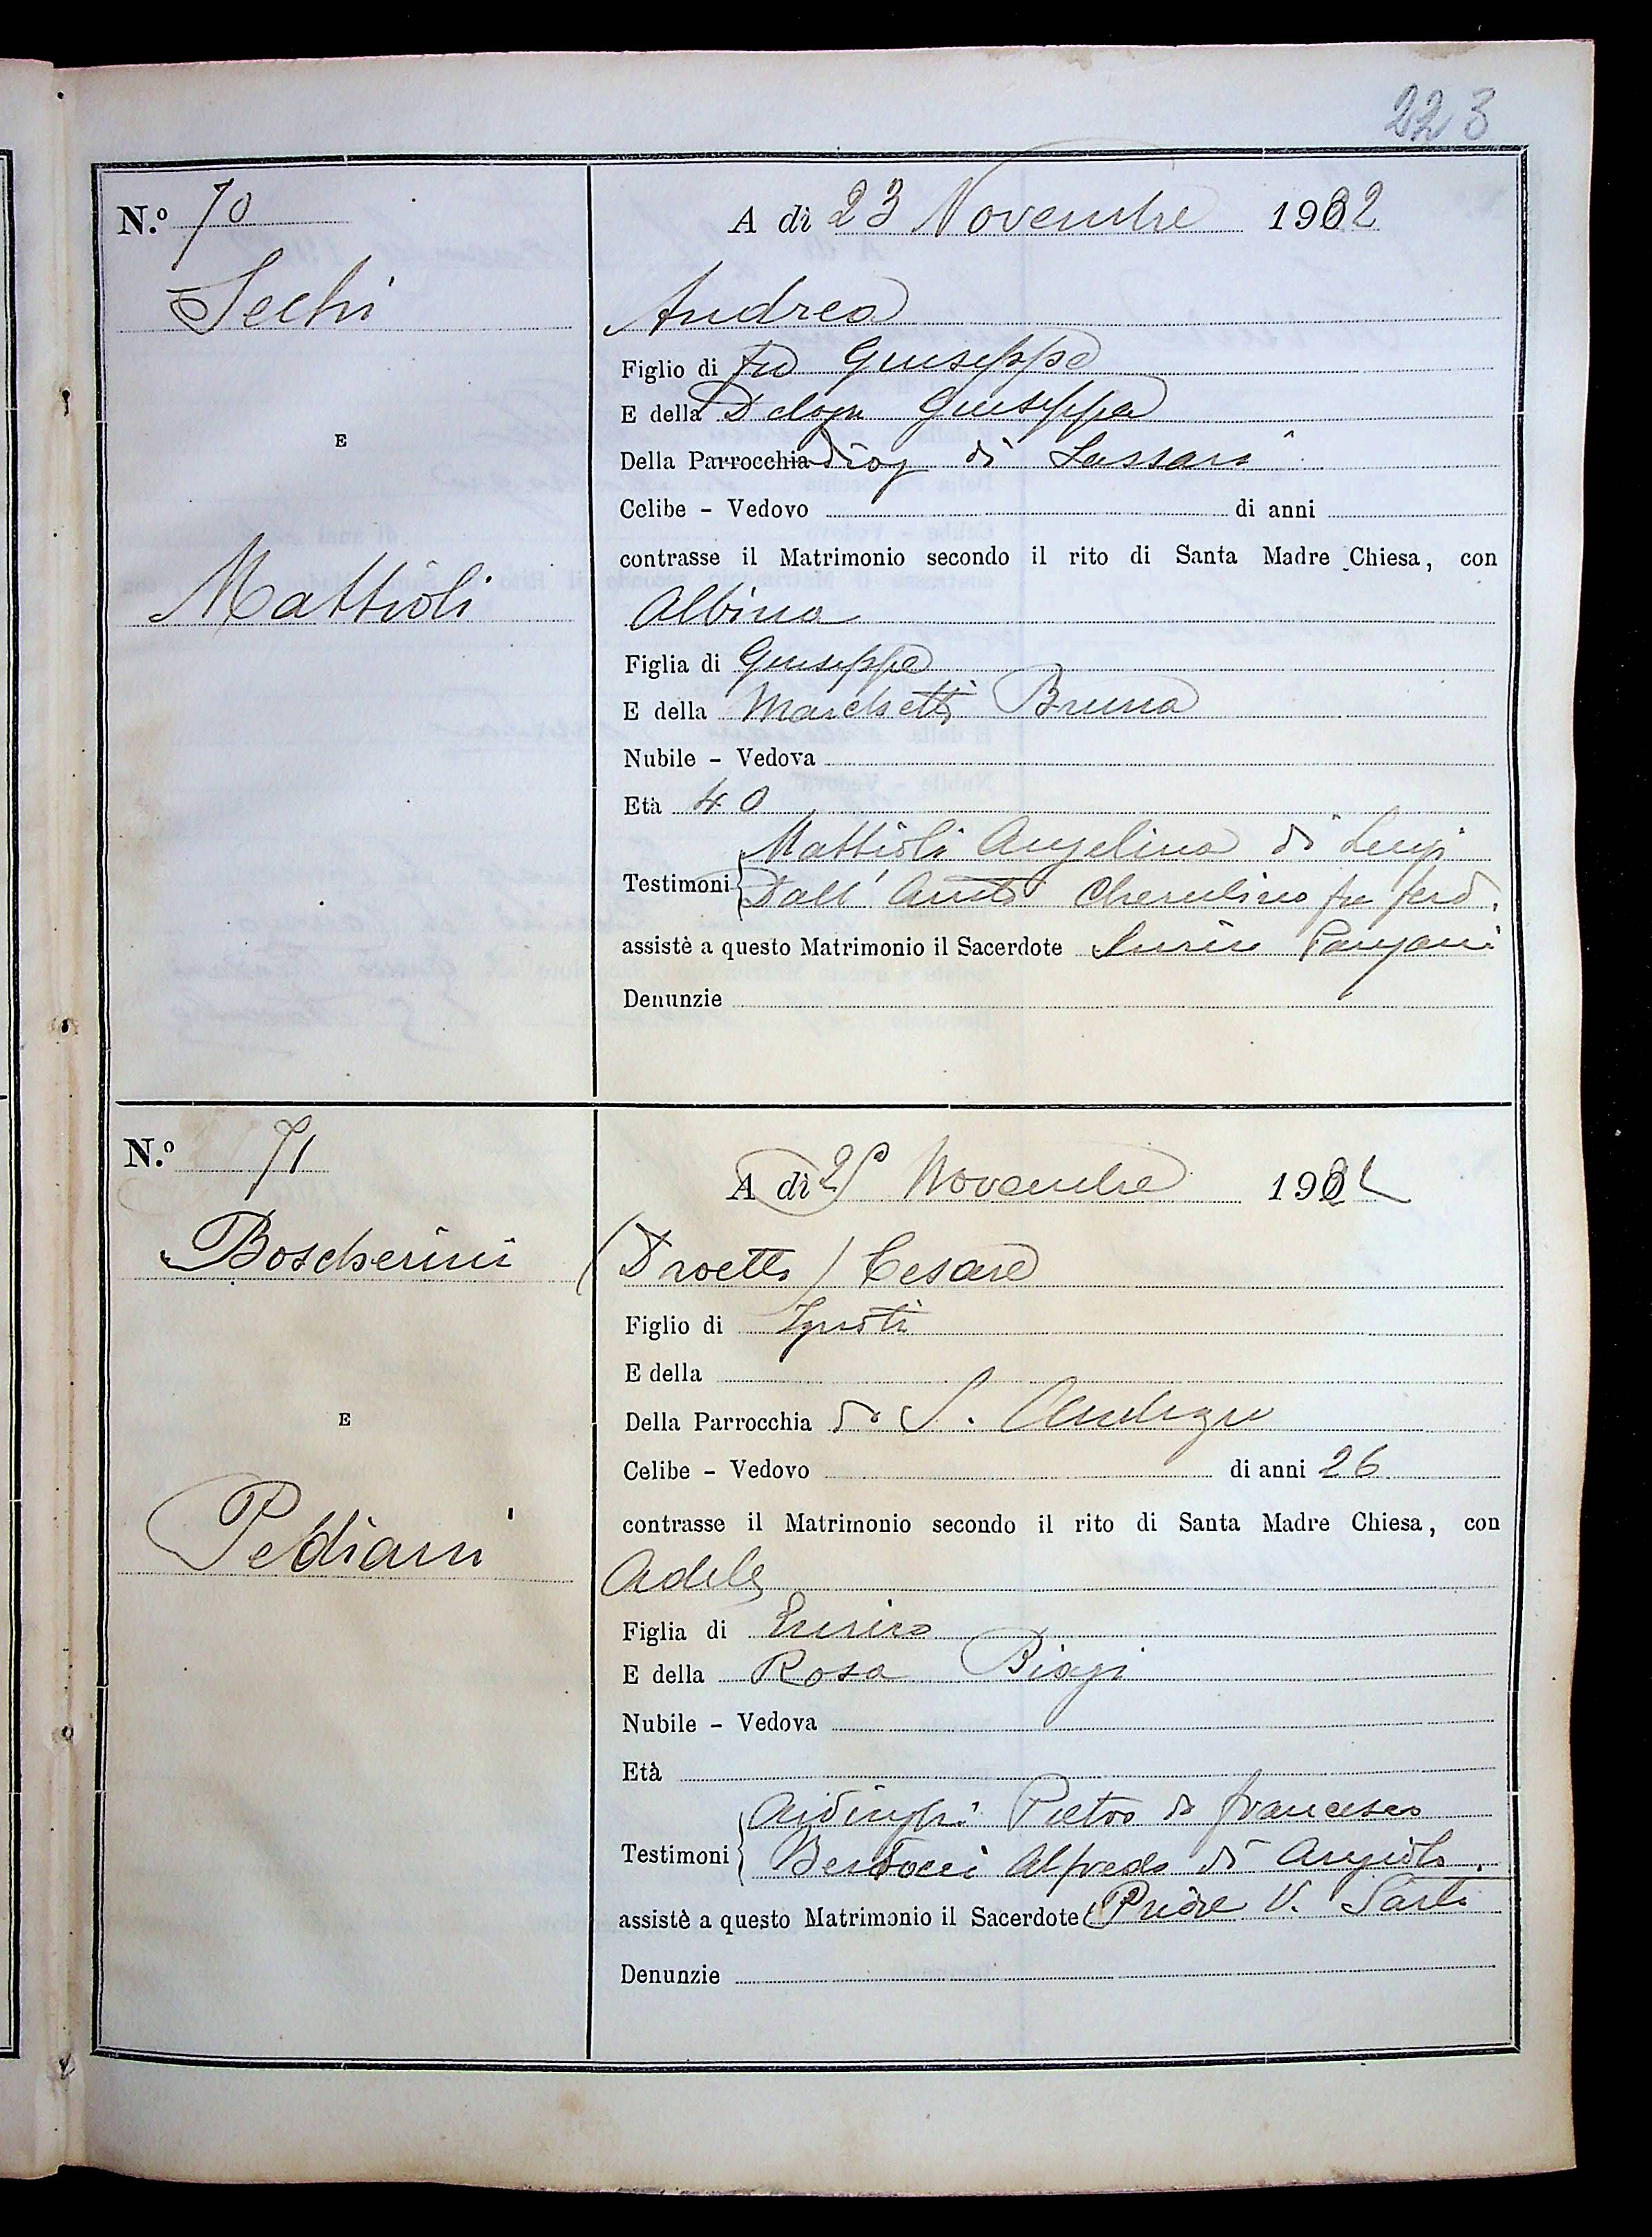 223
N.º 70
A dì 23 Novembre 1912
Sechi
Andrea
Figlio di fu Giuseppe
E della Delogu Giuseppa
Della Parrocchia diog di Sassari
E
Celibe - Vedovo di anni
contrasse il Matrimonio secondo il rito di Santa Madre Chiesa, con
Mattioli
Albina
Figlia di Giuseppe
E della Marchetti Bruna
Nubile - Vedova
Età 40
Mattioli Angelina di Luigi
Testimoni
Dall' Cherubino fu ferd.
assistè a questo Matrimonio il Sacerdote
Denunzie
N.º 71
A dì Novembre
Boscherini
(Droetto) Cesare
Figlio di Ignoti
E della
E
Della Parrocchia di S.
Celibe - Vedovo di anni 26
contrasse il Matrimonio secondo il rito di Santa Madre Chiesa, con
Pediani
Adele
Figlia di Enrico
E della Rosa Biagi
Nubile - Vedova
Età
Aidinghi Pietro di francesco
Testimoni
Bertocci Alfredo di Angiolo.
assistè a questo Matrimonio il Sacerdote Priore V. Sarti
Denunzie